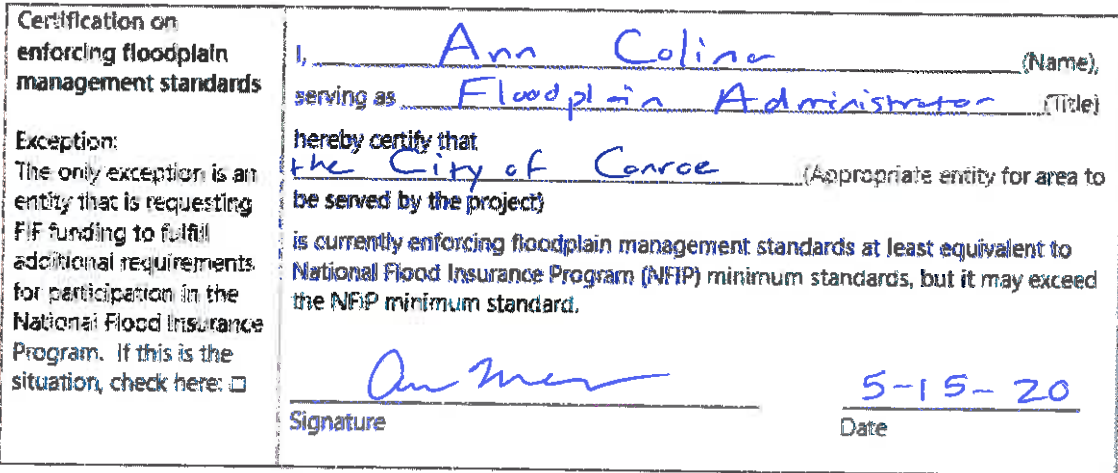 Certification on
enforcing floodplain
management standards
Exception:
The only exception is an
entity that is requesting
FIF funding to fulfill
additional requirements
for participation in the
National Flood Insurance
Program. If this is the
situation, check here: □
I, Ann Colina (Name),
serving as Floodplain Administrator (Title)
hereby certify that
the City of Conroe (Appropriate entity for area to
be served by the project)
is currently enforcing floodplain management standards at least equivalent to
National Flood Insurance Program (NFIP) minimum standards, but it may exceed
the NFIP minimum standard.
5-15-20
Signature Date